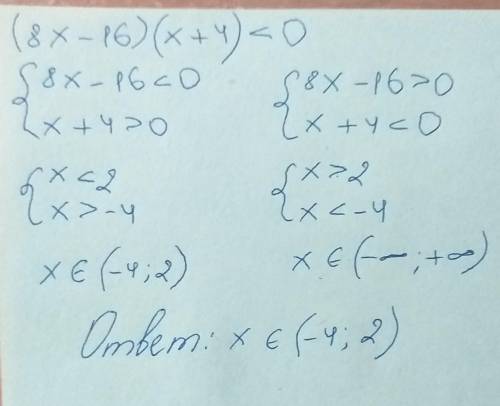 (8x-16)(x+4)<0
{8x-16<0 {8x-16>0
x+4>0 x+4<0
{x<2 {x>2
x>-4 x<-4
x∈(-4;2) x∈(-∞;+∞)
Ответ: x∈(-4;2)